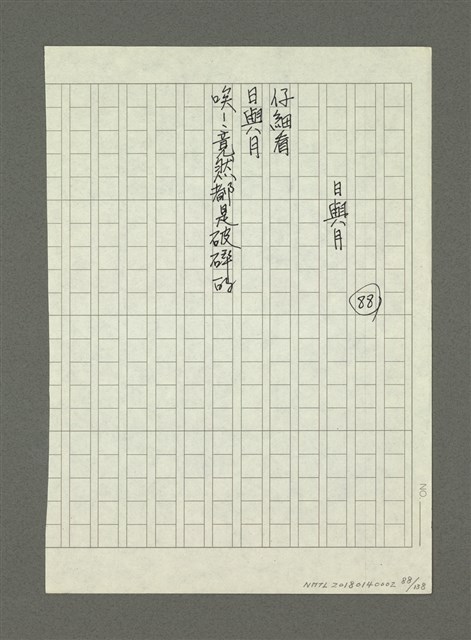 88
日與月
仔細看
日與月
唉！竟然都是破碎的
NO.
NMTL 20180140002 88/138